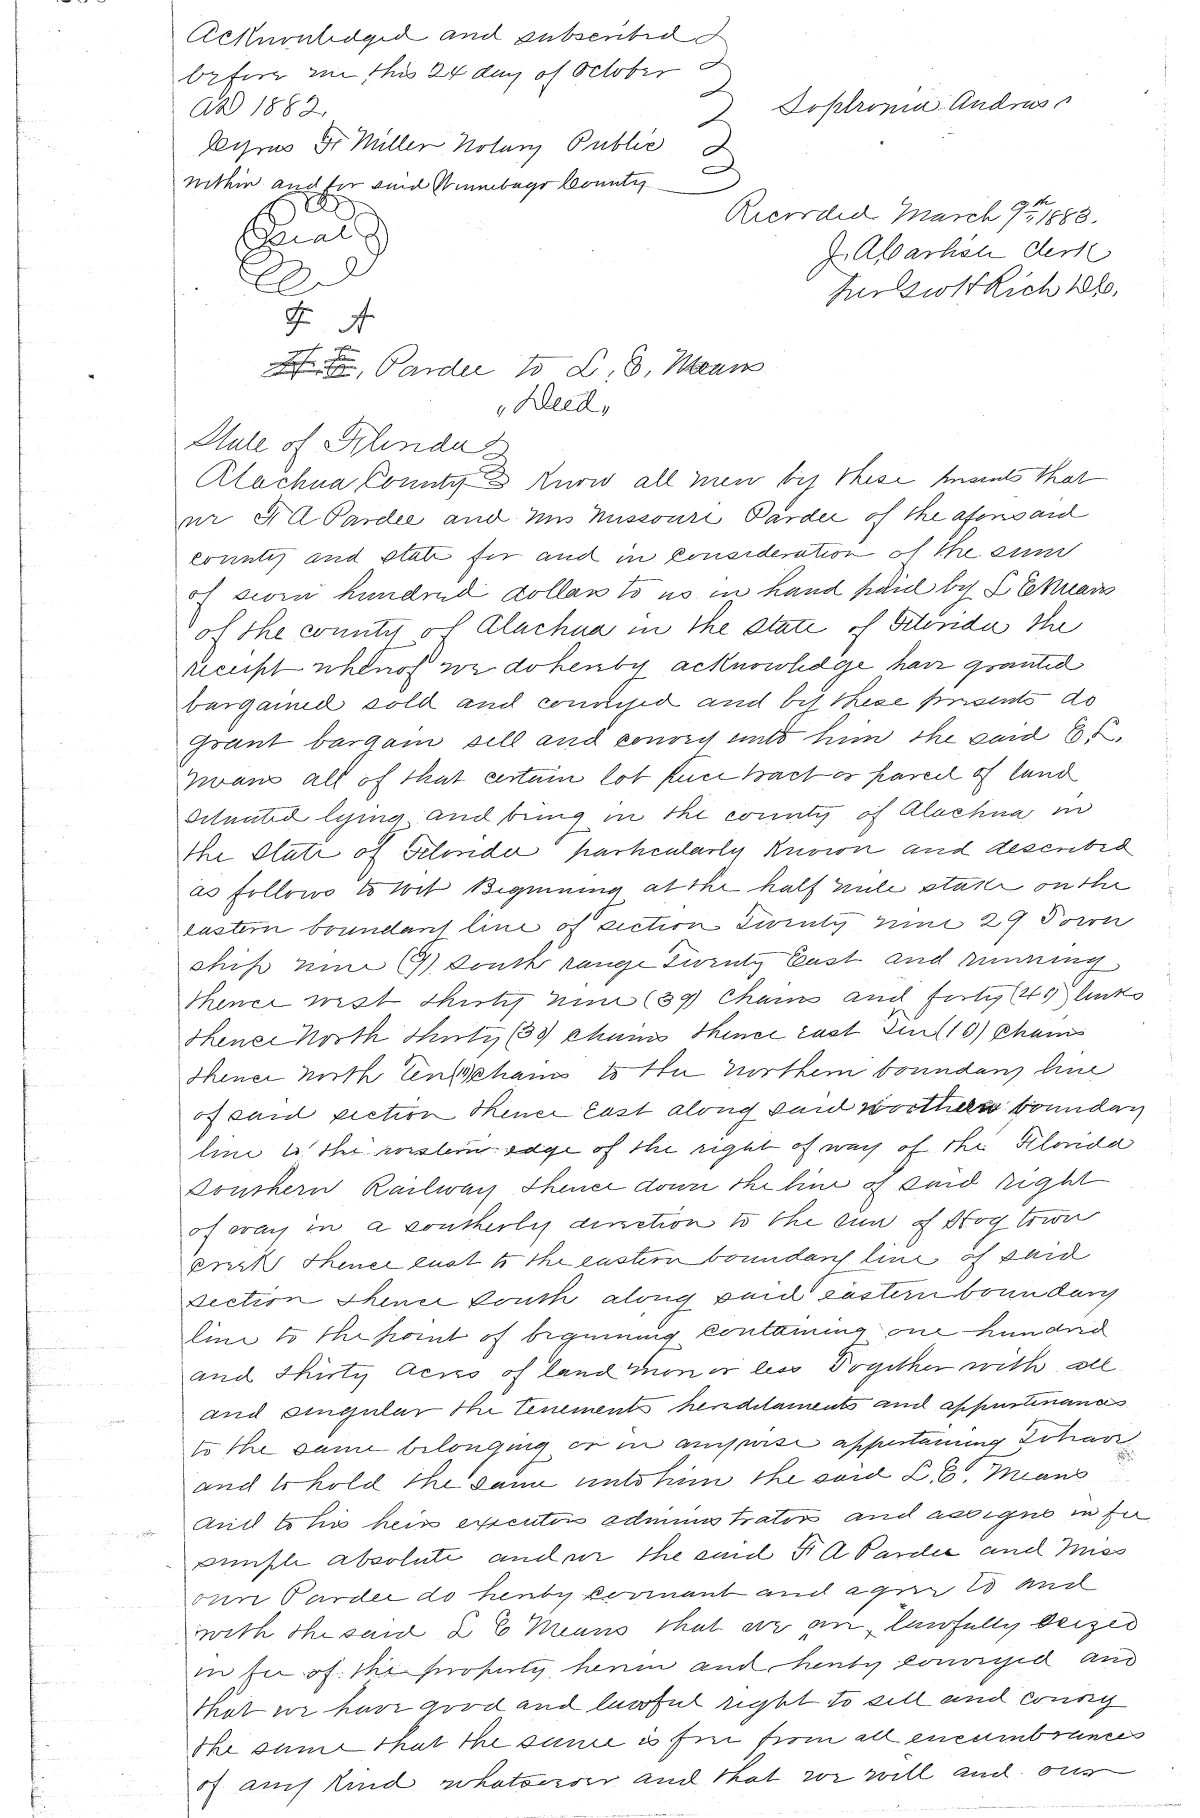 Acknowledged and subscribed
before me this 24 day of October
AD 1882.
Sophronia Andruss
Cyrus F. Miller Notary Public
within and for said Winnebago County
Seal
Recorded March 9th 1883.
J. A. Carlisle clerk
per Scott Rich D.C.
F A
Pardee to L. E. Means
"Deed"
State of Florida
Alachua County Know all men by these presents that
we F A Pardee and Mrs Missouri Pardee of the aforesaid
county and state for and in consideration of the sum
of seven hundred dollars to us in hand paid by L E Means
of the county of Alachua in the state of Florida the
receipt whereof we do hereby acknowledge have granted
bargained sold and conveyed and by these presents do
grant bargain sell and convey unto him the said E. L.
Means all of that certain lot piece tract or parcel of land
situated lying and being in the county of Alachua in
the State of Florida particularly known and described
as follows to wit Beginning at the half mile stake on the
eastern boundary line of section Twenty nine 29 Town
ship nine (9) South range Twenty East and running
thence west thirty nine (39) chains and forty (40) links
thence North thirty (30) chains thence east Ten (10) chains
thence north Ten (10) chains to the northern boundary line
of said section thence East along said northern boundary
line to the western edge of the right of way of the Florida
Southern Railway thence down the line of said right
of way in a southerly direction to the run of Hog town
creek thence east to the eastern boundary line of said
section thence South along said eastern boundary
line to the point of beginning containing one hundred
and thirty acres of land more or less Together with all
and singular the tenements hereditaments and appurtenances
to the same belonging or in anywise appertaining To have
and to hold the same unto him the said L. E. Means
and to his heirs executors administrators and assigns in fee
simple absolute and we the said F A Pardee and Miss
ouri Pardee do hereby covenant and agree to and
with the said L E Means that we are lawfully seized
in fee of the property herein and hereby conveyed and
that we have good and lawful right to sell and convey
the same that the same is free from all encumbrances
of any kind whatsoever and that we will and our